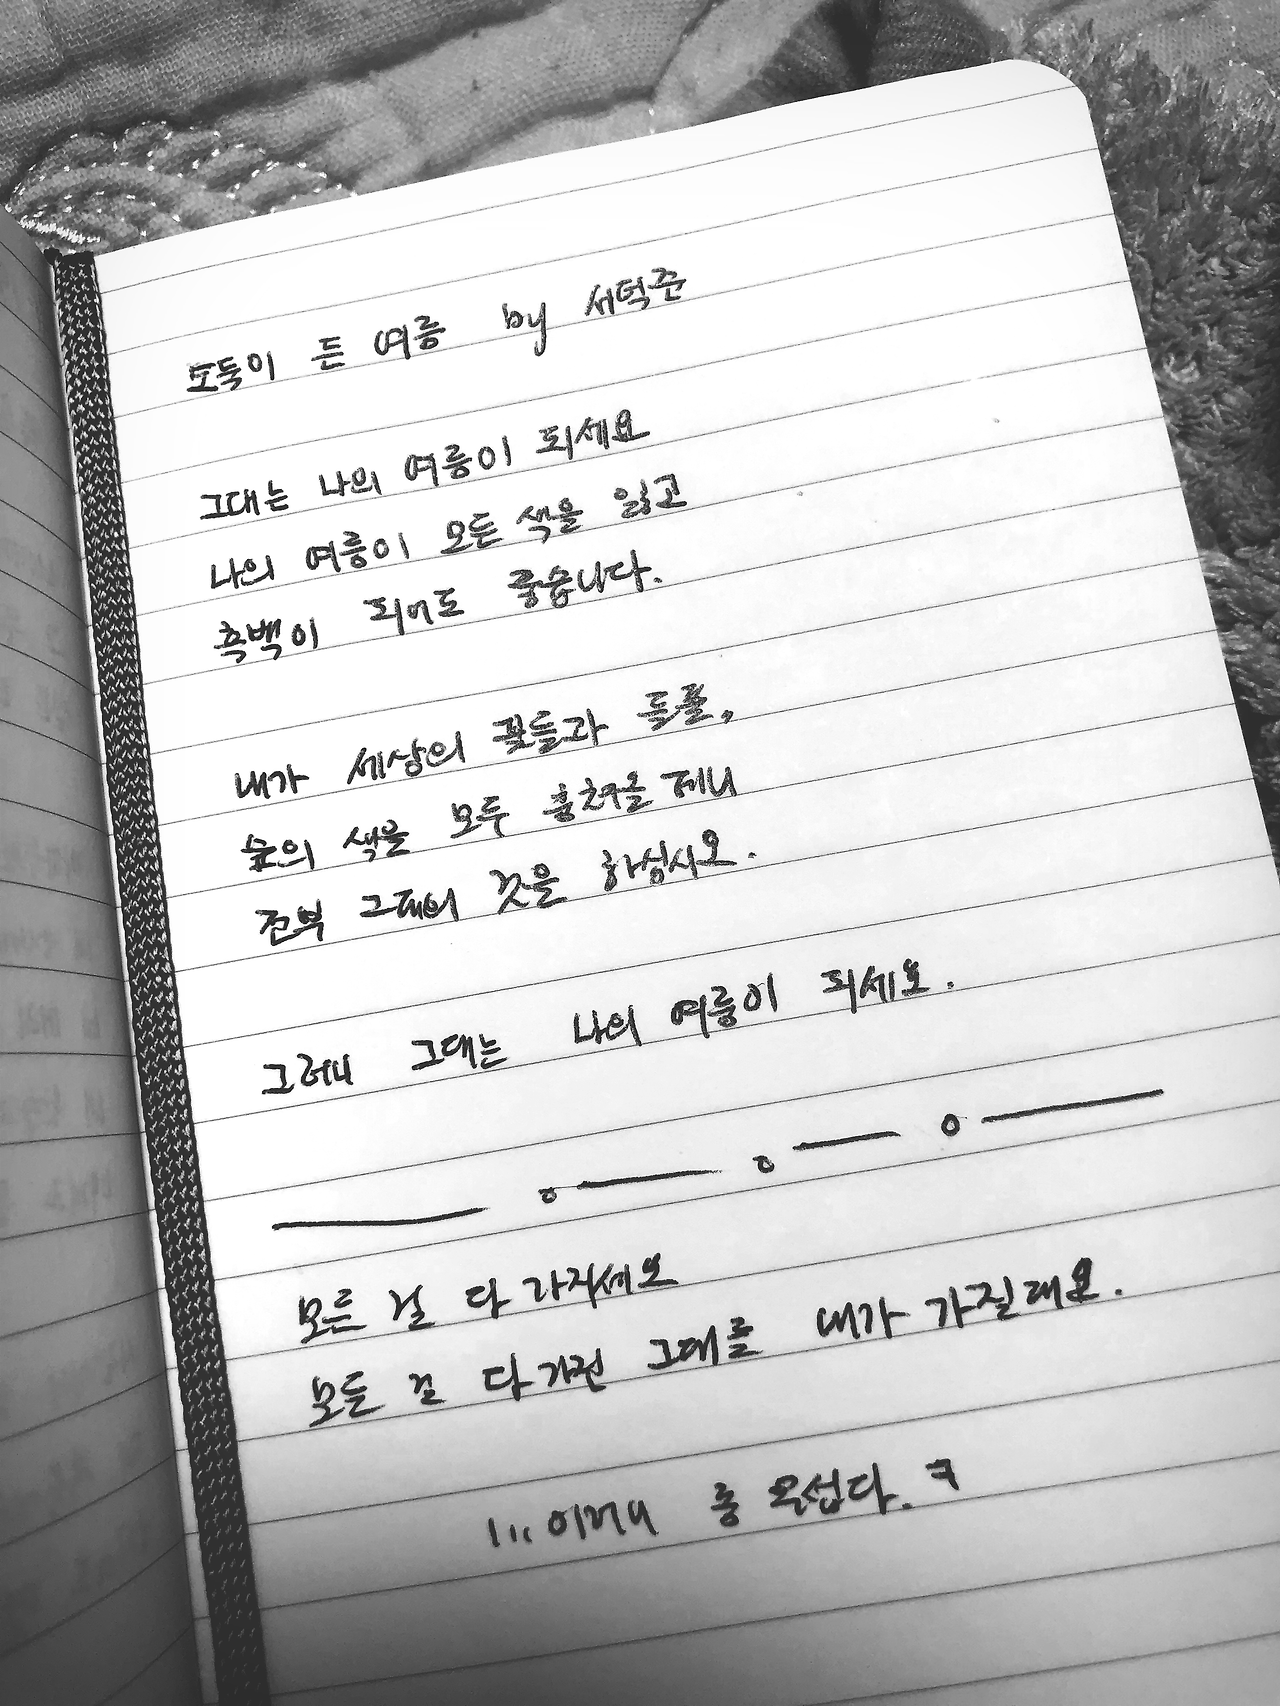 도둑이 든 여름 by 서덕준
그대는 나의 여름이 되세요
나의 여름이 모든 색을 잃고
흑백이 되어도 좋습니다.
내가 세상의 꽃들과 들풀,
숲의 색을 모두 훔쳐올 테니
전부 그대의 것을 하십시오.
그러니 그대는 나의 여름이 되세요.
모든 걸 다 가지세요
모든 걸 다 가진 그대를 내가 가질래요.
이러니 좀 우섭다. ㅋ